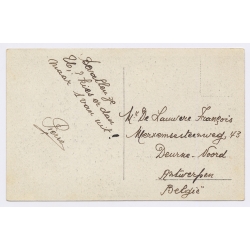 bevallen ze
U? kies er dan
maar 1 van uit!
Pierre
Mr De Lauwere François
Merxemsesteenweg 43
Deurne-Noord
Antwerpen
België